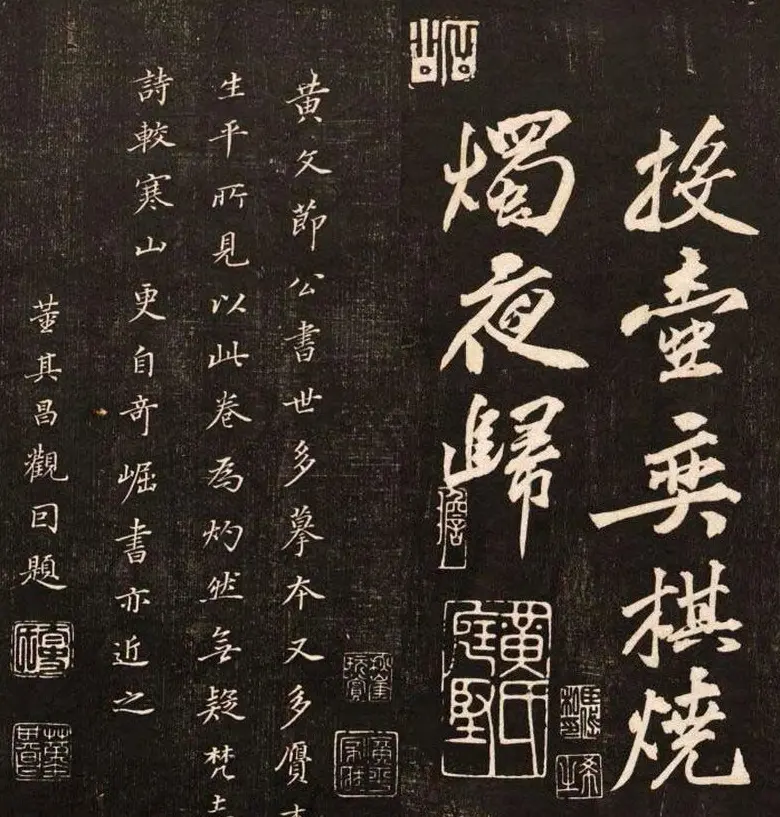 投壺奕棋燒
燭夜歸
黃氏庭堅
黃文節公書世多摹本又多贗
生平所見以此卷為灼然無疑梵
詩較寒山更自奇崛書亦近之
董其昌觀囙題